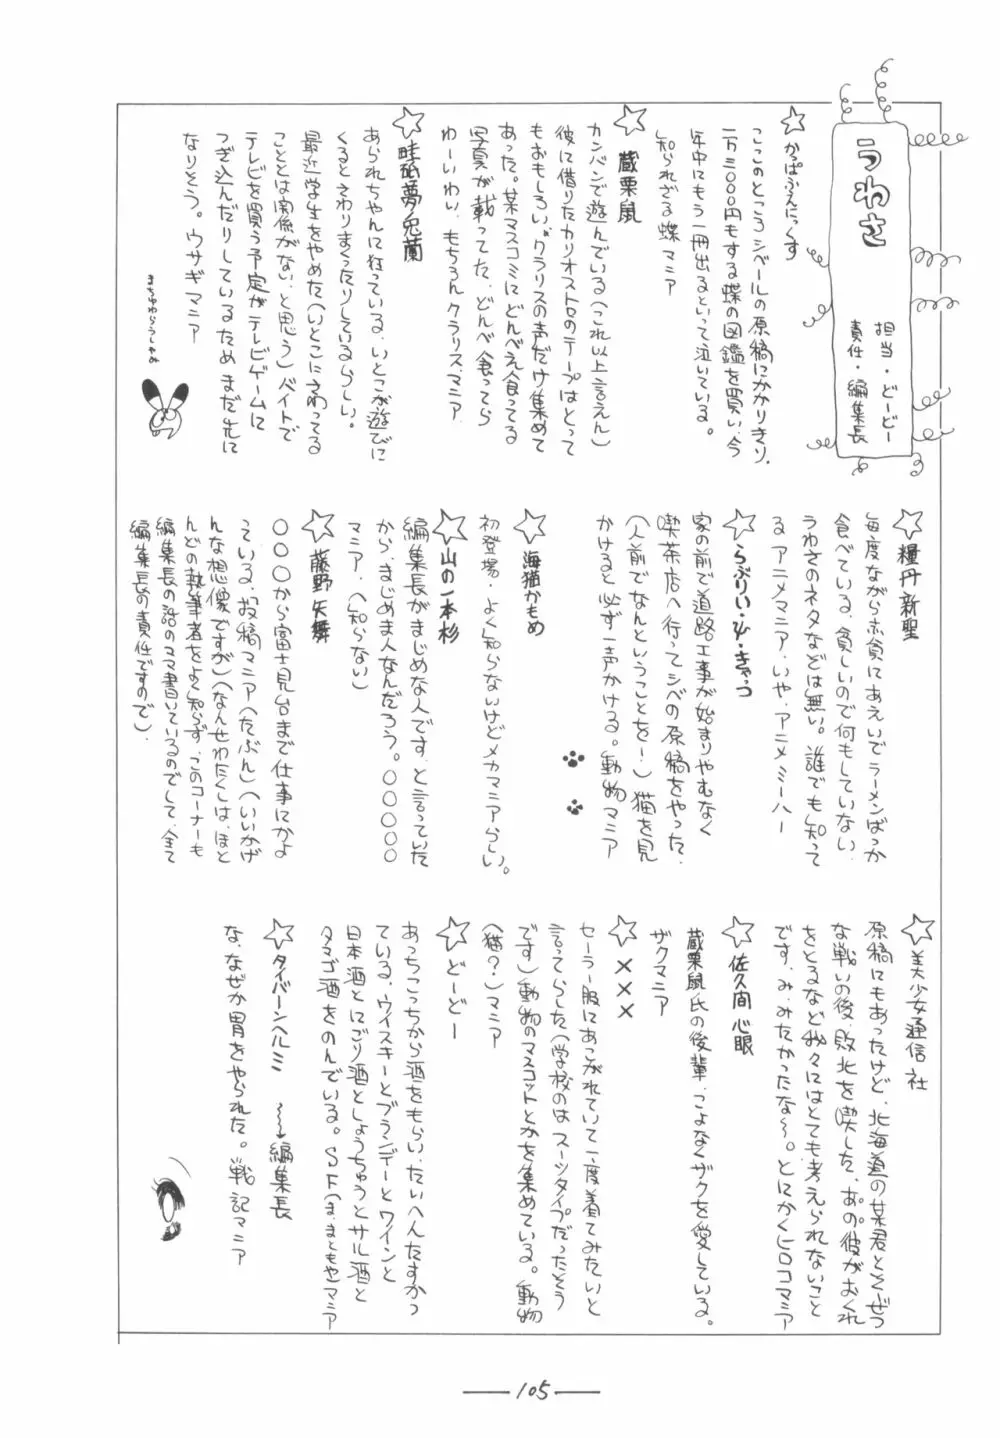 うわさ
担当・どーどー
責任・編集長
☆かっぱふぇにっくす
ここのところシベールの原稿にかかりきり、
一万三〇〇〇円もする蝶の図鑑を買い、今
年中にもう一冊出るといって泣いている。
知られざる蝶マニア
☆蔵栗鼠
カンバンで遊んでいる(これ以上言えん)
彼に借りたカリオストロのテープはとって
もおもしろい。クラリスの声だけ集めて
あった。某マスコミにどんべえ食ってる
写真が載ってた。どんべ食ってら
わーいわい、もちろんクラリス・マニア
☆畦砥夢兎蘭
あられちゃんに狂っている、いとこが遊びに
くるとさわりまくったりしているらしい。
最近学生をやめた(いとこにさわってる
こととは関係がない、と思う)バイトで
テレビを買う予定がテレビゲームに
つぎ込んだりしているため まだ先に
なりそう。ウサギマニア
☆糧丹新聖
毎度ながら赤貧にあえいでラーメンばっか
食べている、貧しいので何もしていない
うわさのネタなどは無い。誰でも知って
る アニメマニア・いや、アニメミーハー
☆らぶりい・ψ・きゃっつ
家の前で道路工事が始まりやむなく
喫茶店へ行ってシベの原稿をやった、
(人前でなんということを!)猫を見
かけると必ず一声かける。動物マニア
☆海猫かもめ
初登場・よく知らないけどメカマニアらしい。
☆山の一本杉
編集長がまじめな人です、と言っていた
から、まじめま人なんだろう。〇〇〇〇〇
マニア、(知らない)
☆藤野矢舞
〇〇〇から富士見台まで仕事にかよ
っている、投稿マニア(たぶん)(いいかげ
んな想像ですが)(なんせわたくしは、ほと
んどの執筆者をよく知らず、このコーナーも
編集長の話のママ書いているのでして、全て
編集長の責任ですので)。
☆美少女通信社
原稿にもあったけど、北海道の某君とそぜつ
な戦いの後、敗北を喫した、あの彼がおくれ
をとるなど我々にはとても考えられないこと
です、み、みたかったな〜。とにかくヒロコマニア
☆佐久間心眼
蔵栗鼠氏の後輩、こよなくザクを愛している。
ザクマニア
☆×××
セーラー服にあこがれていて一度着てみたいと
言ってらした(学校のはスーツタイプだったそう
です)動物のマスコットとかを集めている。動物
(猫?)マニア
☆どーどー
あっちこっちから酒をもらい、たいへんたすかっ
ている、ウイスキーとブランデーとワインと
日本酒とにごり酒としょうちゅうとサル酒と
タマゴ酒をのんでいる。SF(ま、まともや)マニア
☆タイバーンヘルミ 〜〜→編集長
な、なぜか胃をやられた。戦記マニア
105